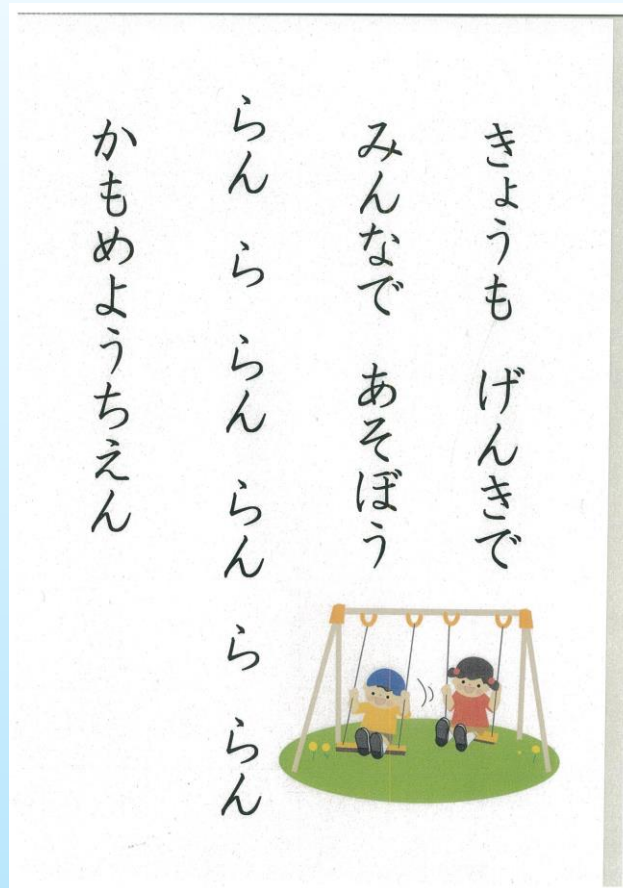 きょうも げんきで
みんなで あそぼう
らん ら らん らん ら らん
かもめようちえん